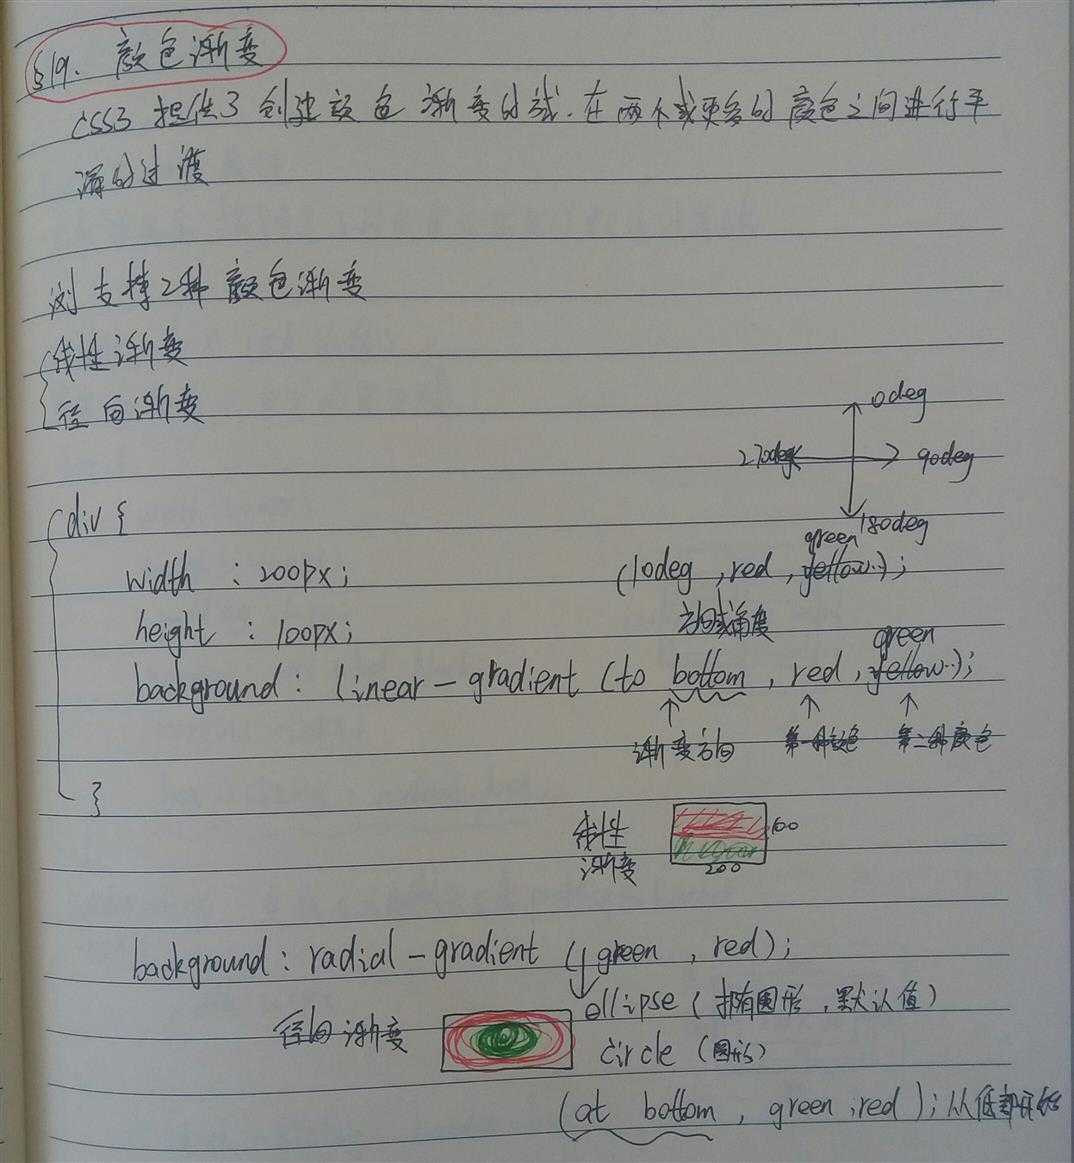 §19. 颜色渐变
CSS3 提供了创建颜色渐变的, 在两个或更多的颜色之间进行平
滑的过渡
浏支持2种颜色渐变
线性渐变
径向渐变
0deg
270deg
90deg
180deg
div {
width : 200px;
green
(10deg , red , yellow..);
height : 100px;
方向或角度
green
background : linear-gradient (to bottom , red , yellow..);
渐变方向 第一种颜色 第二种颜色
}
线性
渐变
100
200
background : radial-gradient ( green , red);
ellipse (椭圆形, 默认值)
径向渐变
circle (圆形)
(at bottom , green , red ); 从底部开始